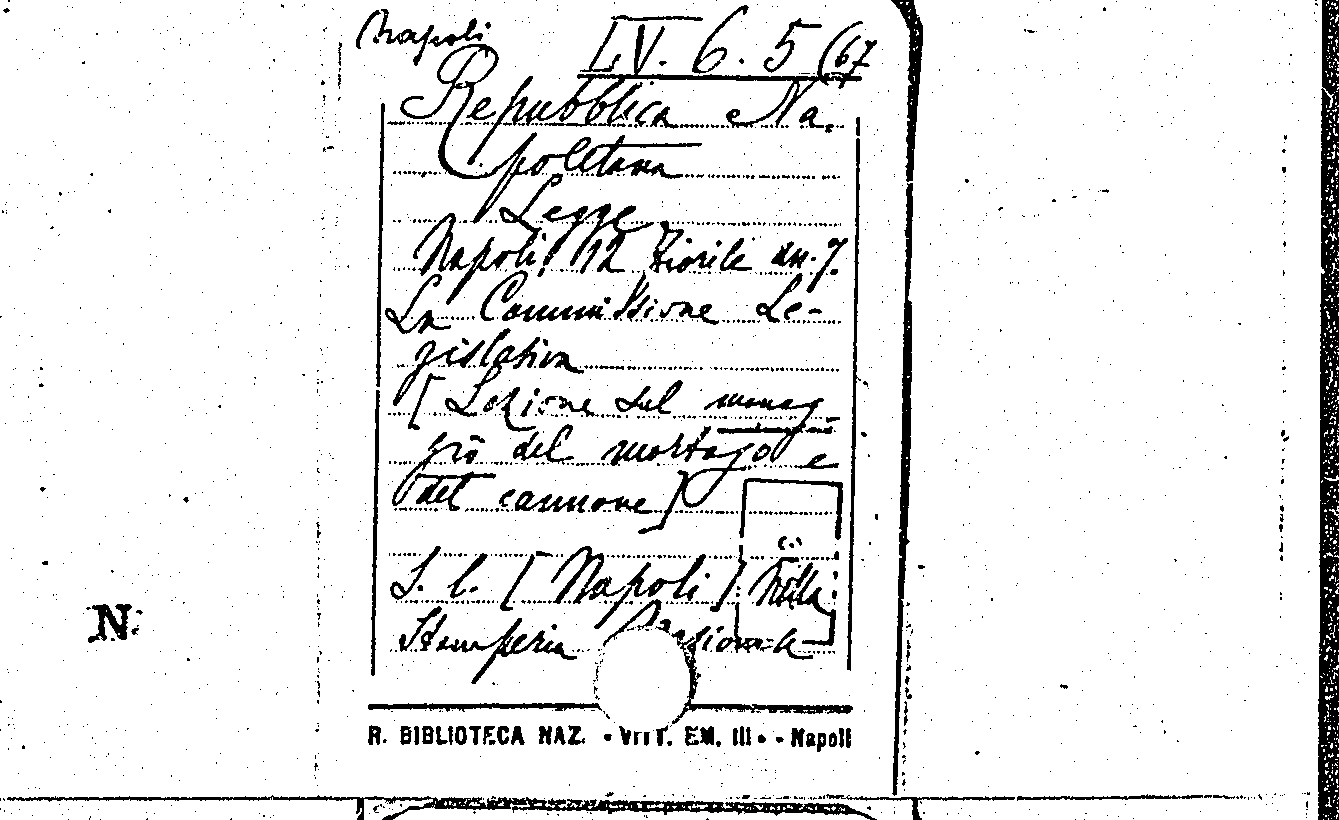 Napoli
LV. 6. 5 (67
Repubblica Na.
poletana
Legge
Napoli, 12 Fiorile an. 7.
La Commissione Le-
gislativa
[Lezione sul maneg-
gio del mortajo e
del cannone]
S. l. [Napoli] Nella
Stamperia Nazionale
N.
R. BIBLIOTECA NAZ. - VITT. EM. III - - Napoli